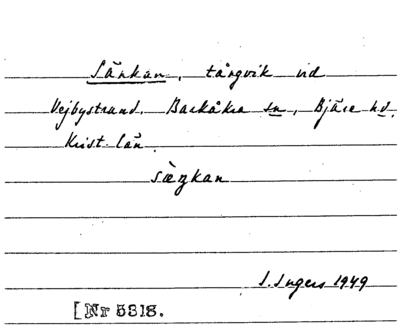 Sänkan, tångvik vid
Vejbystrand. Barkåkra sn, Bjäre hd,
Krist. län.
sæŋkan
I. Ingers 1949
[Nr 5318.